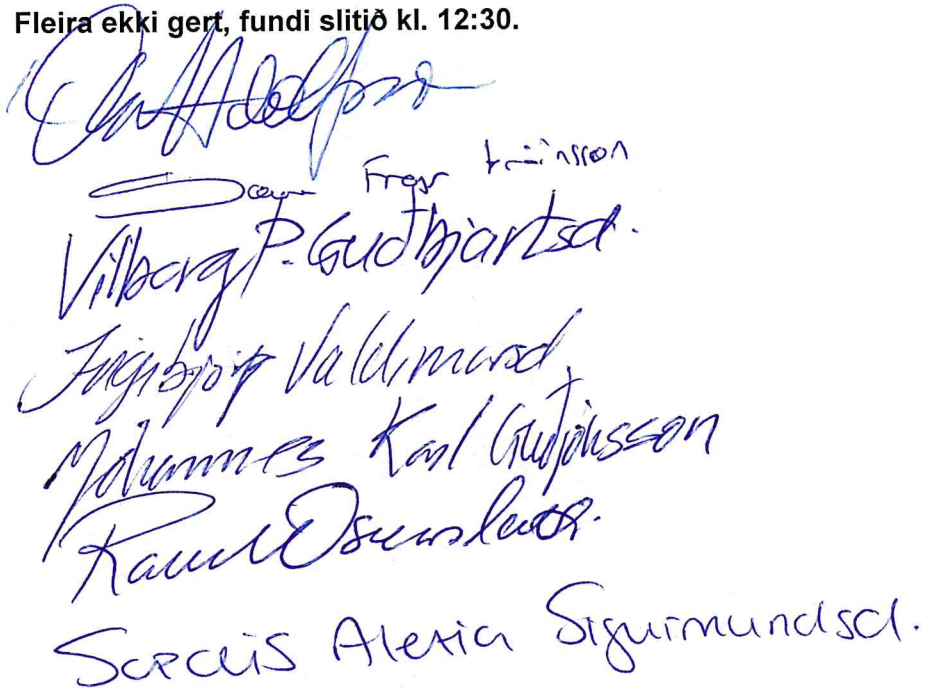 Fleira ekki gert, fundi slitið kl. 12:30.
Adolfsson
Freyr Þráinsson
Vilborg P. Guðbjartsd.
Ingibjörg Valdimarsd.
Jóhannes Karl Guðjónsson
Sædís Alexía Sigurmundsd.